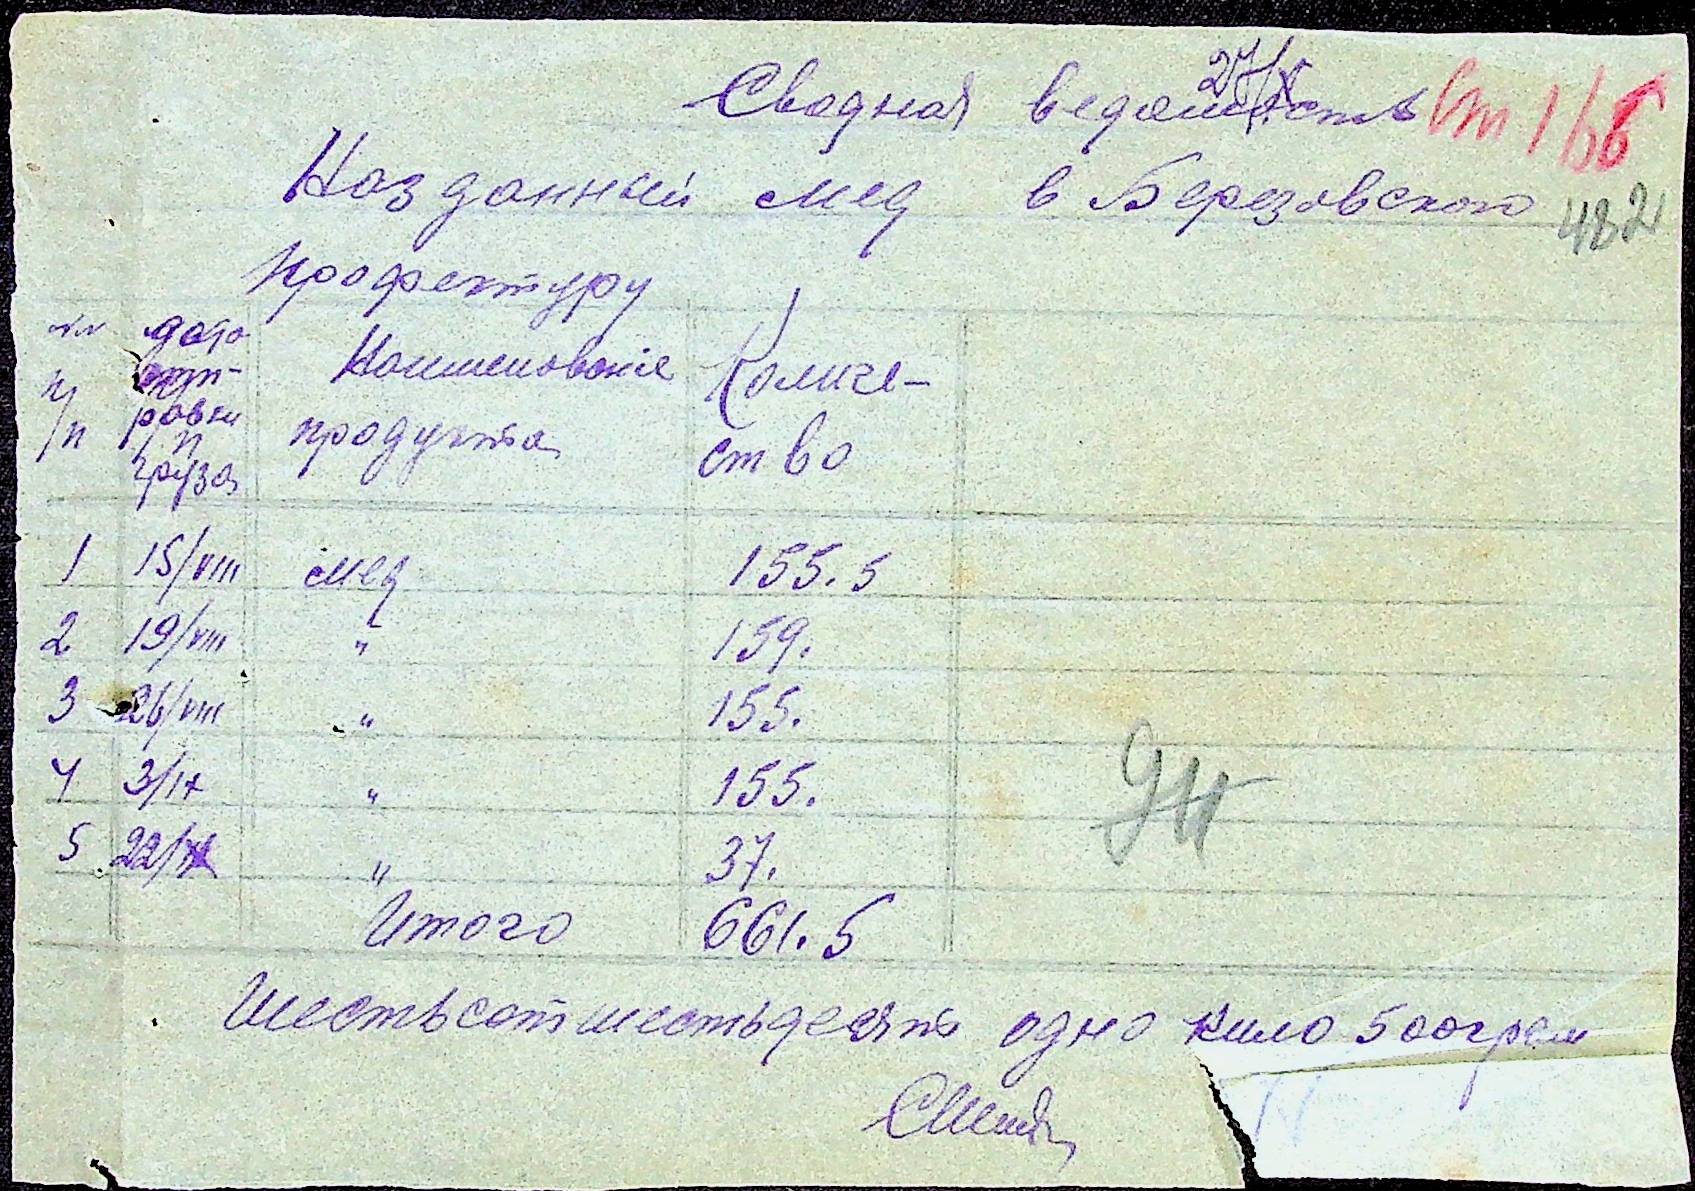 27/X
Сводная ведомость
На зданный мед в Березовского
префектуру
482
№№ п/п дата отправки груза Наименование продукта Количество
1 15/VIII мед 155.5
2 19/VIII " 159.
3 26/VIII " 155.
4 3/IX " 155.
5 22/IX " 37.
Итого 661.5
Шестьсот шестьдесят одно кило 500 грам